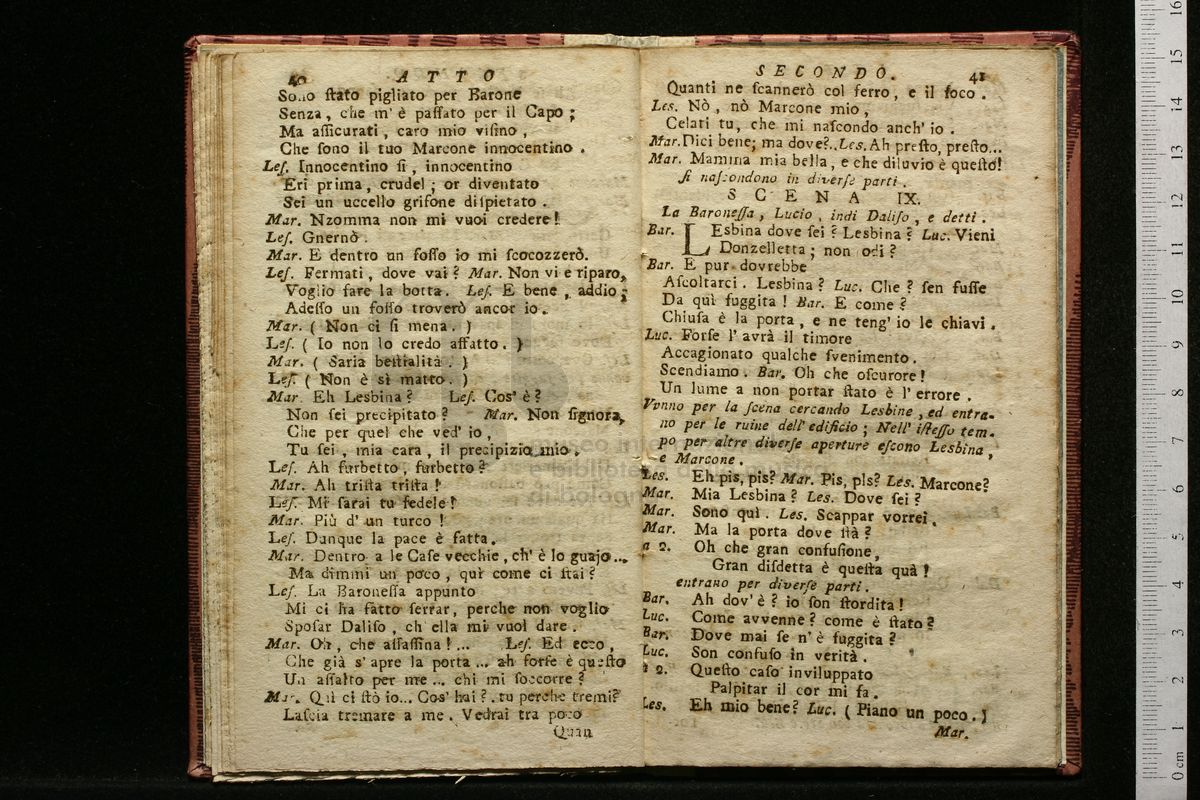 40 ATTO
Sono ſtato pigliato per Barone
Senza, che m' è paſſato per il Capo;
Ma aſſicurati, caro mio viſino,
Che ſono il tuo Marcone innocentino.
Leſ. Innocentino sì, innocentino
Eri prima, crudel; or diventato
Sei un uccello grifone diſpietato.
Mar. Nzomma non mi vuoi credere!
Leſ. Gnernò.
Mar. E dentro un foſſo io mi ſcocozzerò.
Leſ. Fermati, dove vai? Mar. Non vi e riparo,
Voglio fare la botta. Leſ. E bene, addio;
Adeſſo un foſſo troverò ancor io.
Mar. (Non ci ſi mena.)
Leſ. (Io non lo credo affatto.)
Mar. (Saria beſtialità.)
Leſ. (Non è sì matto.)
Mar. Eh Lesbina? Leſ. Cos' è?
Non ſei precipitato? Mar. Non ſignora,
Che per quel che ved' io,
Tu ſei, mia cara, il precipizio mio.
Leſ. Ah furbetto, furbetto?
Mar. Ah triſta triſta!
Leſ. Mi ſarai tu fedele?
Mar. Più d' un turco!
Leſ. Dunque la pace è fatta.
Mar. Dentro a le Caſe vecchie, ch' è lo guajo...
Ma dimmi un poco, quì come ci ſtai?
Leſ. La Baroneſſa appunto
Mi ci ha fatto ſerrar, perche non voglio
Spoſar Daliſo, ch ella mi vuol dare.
Mar. Oh, che aſſaſſina!... Leſ. Ed ecco,
Che già s' apre la porta... ah forſe è queſto
Un aſſalto per me... chi mi ſoccorre?
Mar. Quì ci ſtò io... Cos' hai? tu perche tremi?
Laſcia tremare a me. Vedrai tra poco
Quan
SECONDO. 41
Quanti ne ſcannerò col ferro, e il foco.
Les. Nò, nò Marcone mio,
Celati tu, che mi naſcondo anch' io.
Mar. Dici bene; ma dove?.. Les. Ah preſto, preſto...
Mar. Mamma mia bella, e che diluvio è queſto!
ſi naſcondono in diverſe parti.
SCENA IX.
La Baroneſſa, Lucio, indi Daliſo, e detti.
Bar. LEsbina dove ſei? Lesbina? Luc. Vieni
Donzelletta; non odi?
Bar. E pur dovrebbe
Aſcoltarci. Lesbina? Luc. Che? ſen fuſſe
Da quì fuggita! Bar. E come?
Chiuſa è la porta, e ne teng' io le chiavi.
Luc. Forſe l' avrà il timore
Accagionato qualche ſvenimento.
Scendiamo. Bar. Oh che oſcurore!
Un lume a non portar ſtato è l' errore.
Vvnno per la ſcena cercando Lesbine, ed entra-
no per le ruine dell' edificio; Nell' iſteſſo tem-
po per altre diverſe aperture eſcono Lesbina,
e Marcone.
Les. Eh pis, pis? Mar. Pis, pIs? Les. Marcone?
Mar. Mia Lesbina? Les. Dove ſei?
Mar. Sono quì. Les. Scappar vorrei.
Mar. Ma la porta dove ſtà?
a 2. Oh che gran confuſione,
Gran diſdetta è queſta quà!
entrano per diverſe parti.
Bar. Ah dov' è? io ſon ſtordita!
Luc. Come avvenne? come è ſtato?
Bar. Dove mai ſe n' è fuggita?
Luc. Son confuſo in verità.
a 2. Queſto caſo inviluppato
Palpitar il cor mi fa.
Les. Eh mio bene? Luc. (Piano un poco.)
Mar.